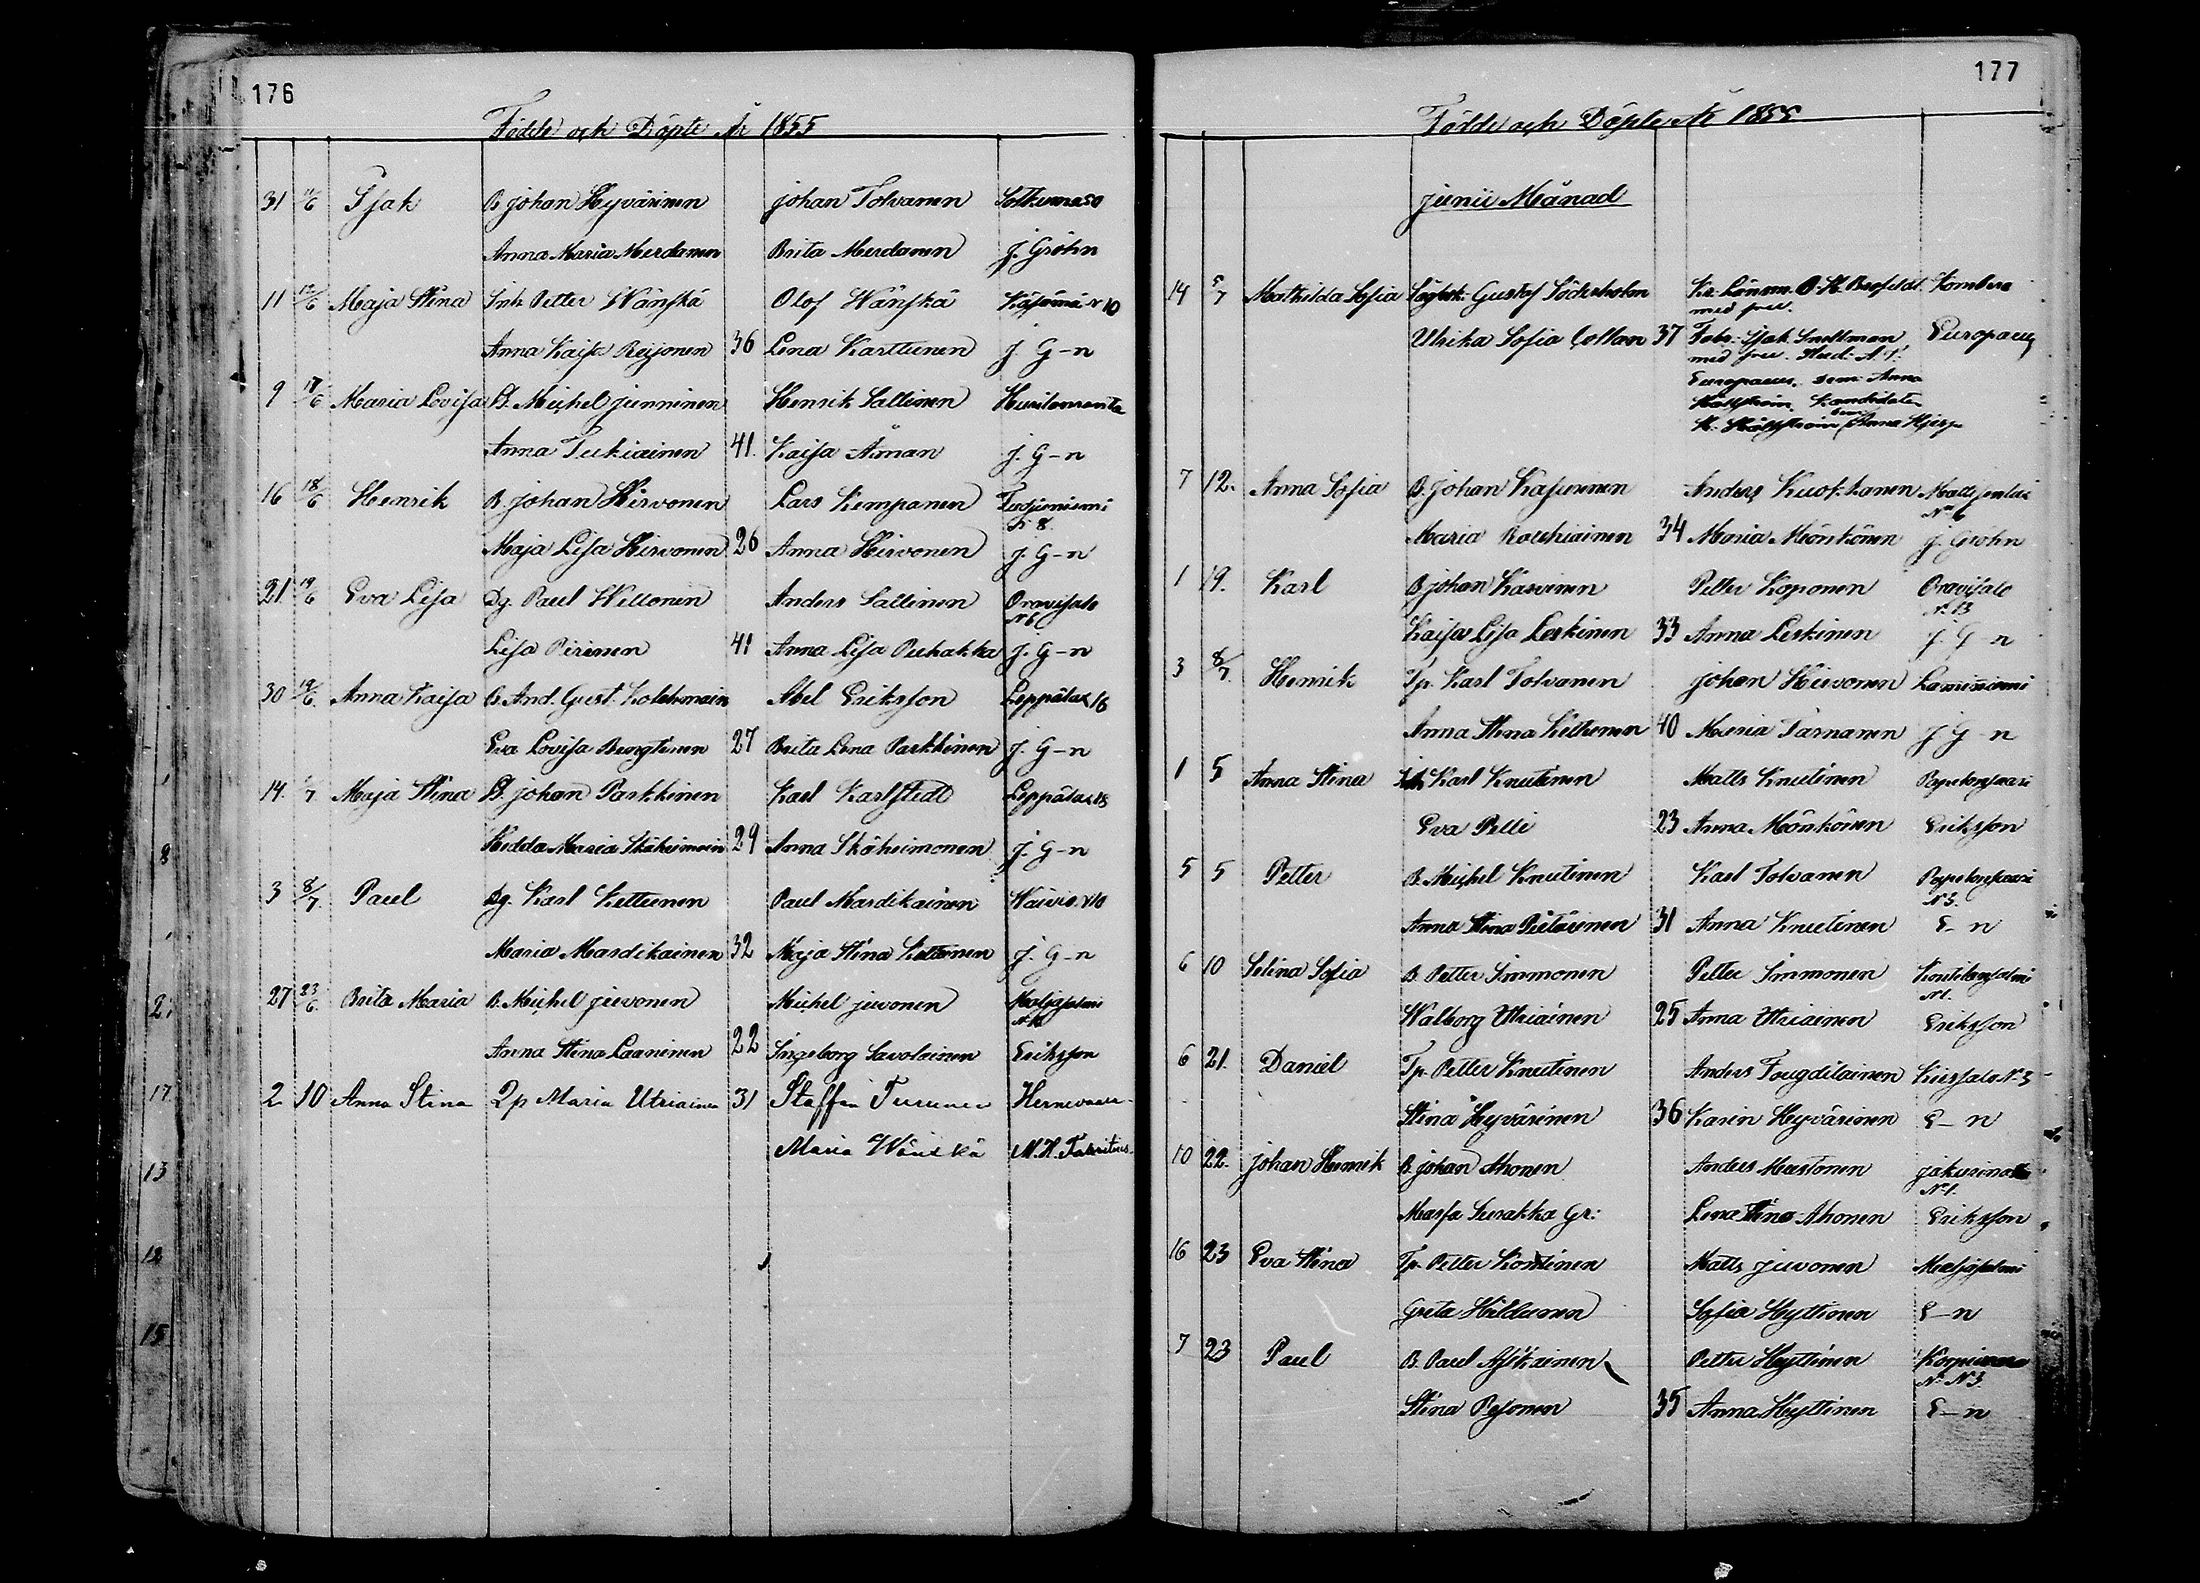 176
Födde och Döpte År 1855
31 11/6 Isak B. Johan Hyvärinen Johan Tolvanen Sotkuma 50
Anna Maria Merdanen Brita Merdanen J. Gröhn
11 17/6 Maja Stina Inh. Petter Wänskä Olof Wänskä N 10
Anna Kaisa Reijonen 36 Lena Karttunen J. G-n
9 17/6 Maria Lovisa B. Michel Junninen Henrik Sallinen
Anna Tukiainen 41. Kaisa Åman J. G-n
16 18/6 Henrik B. Johan Hirvonen Lars Kempanen
N 8
Maja Lisa Hirvonen 26 Anna Hirvonen J. G-n
21. 19/6 Eva Lisa Dg. Paul Willonen Anders Sallinen Oravisalo
N 6
Lisa Pirinen 41 Anna Lisa Puhakka J. G-n
30 19/6. Anna Kaisa B. And. Gust. Kolehmain Abel Eriksson Leppälax 16
Eva Lovisa Bengtinen 27 Brita Lena Parkkinen J. G-n
14. 1/7 Maja Stina B. Johan Parkkinen Karl Karlstedt Leppälax 18
Hedda Maria Sköhimoin 29 Anna Skähimonen J. G-n
3 8/7. Paul Dg. Karl Kettunen Paul Mardikainen N 10
Maria Mardikainen 32 Maja Stina Kettunen J. G-n
27 23/6. Brita Maria B. Michel Juvonen Michel Juvonen Maljasalmi
Anna Stina Laaninen 22 Ingeborg Savolainen Eriksson
2 10 Anna Stina Qp Maria Utriainen 31 Staffan Turunen Hernevaara
Maria Wänskä M. H. Fabritius
177
Födde och Döpte År 1855
Junii Månad
14 5/7 Mathilda Sofia Gustaf Söderholm Kr. Länsm. O. H. Brofeldt Kombero
med fru.
Ulrika Sofia Collan 37 Fabr. Isak Snellman, Europaeus
med fru. Stud. A. J.
Europaeus. Dem. Anna
Hällström. Kandidaten
K. Hällström Dem. Anna Hjerp
7 12. Anna Sofia B. Johan Kasurinen Anders Kuokkanen Mattisenlax
N 6
Maria Rouhiainen 34 Maria Mönkönen J. Gröhn
1 19. Karl B. Johan Karvinen Petter Koponen Oravisalo
N. 13
Kaisa Lisa Leskinen 33 Anna Leskinen J. G-n
3 8/7. Henrik Tp. Karl Tolvanen Johan Hirvonen Laminniemi
Anna Stina Kettunen 40 Maria Tarnanen J. G-n
1 5 Anna Stina Inh. Karl Knutinen Matts Knutinen
Eva Pelli 23 Anna Mönkönen Eriksson
5 5 Petter B. Michel Knutinen Karl Tolvanen
N 3.
Anna Stina Pitäinen 31 Anna Knutinen E-n
6 10 Selina Sofia B. Petter Immonen Petter Immonen Kontkasalmi
N 1.
Walborg Utriainen 25 Anna Utriainen Eriksson
6 21. Daniel Tp. Petter Knutinen Anders Fougdilainen Kuusalo N. 3
Stina Hyvärinen 36 Karin Hyvärinen E-n
10 22. Johan Henrik B. Johan Ahonen Anders Mustonen
N 1.
Marfa Surakka Gr: Lena Stina Ahonen Eriksson
16 23 Eva Stina Tp. Petter Kontinen Matts Juvonen Maljasalmi
Greta Hildanen Sofia Hyttinen E-n
7 23 Paul B. Paul Asikainen Petter Hyttinen Korpivaara
N. N 3.
Stina Pesonen 35 Anna Hyttinen E-n
1
8
2
17
13
12
15